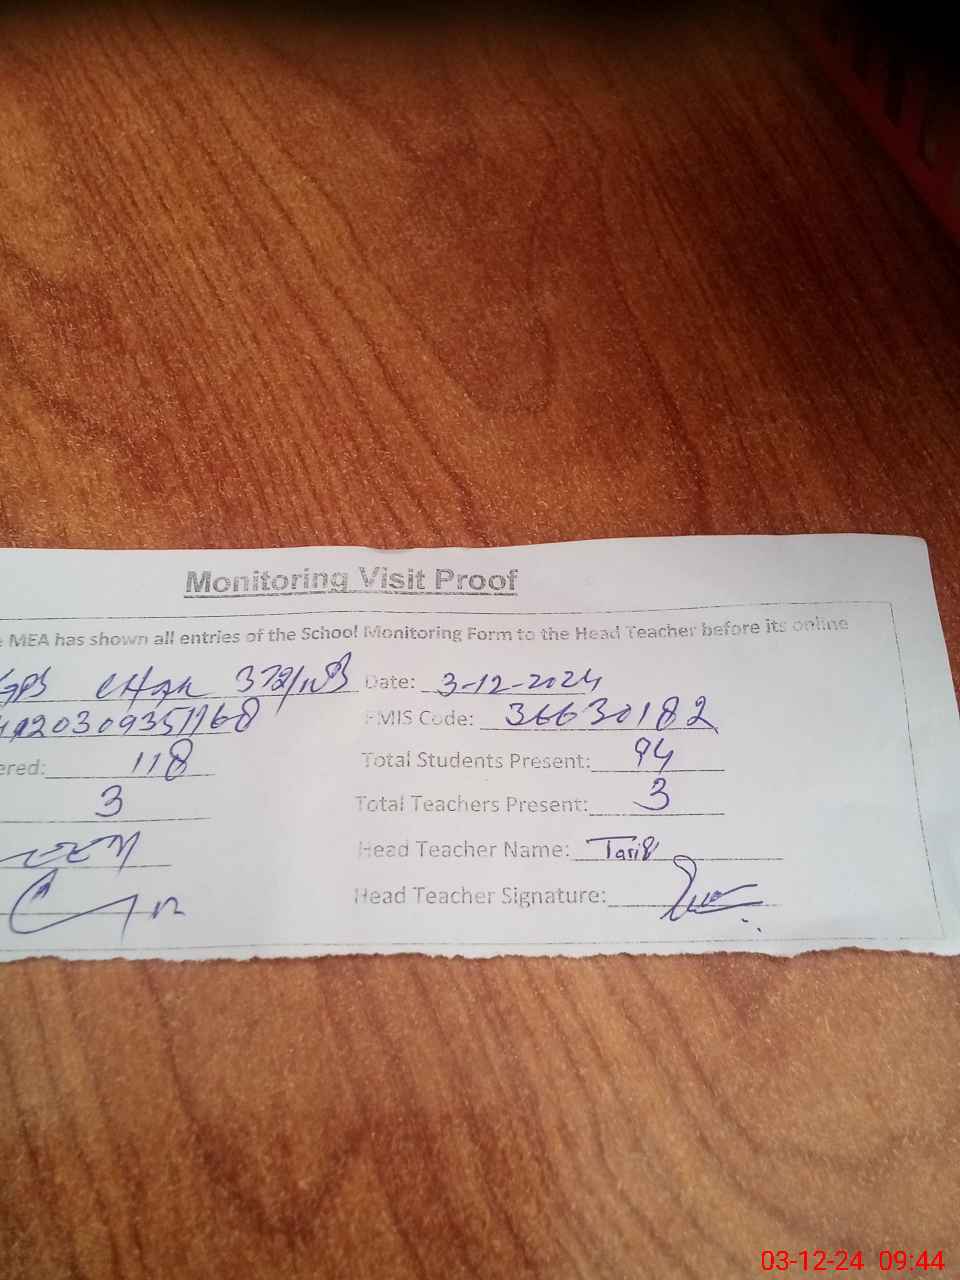 Monitoring Visit Proof
MEA has shown all entries of the School Monitoring Form to the Head Teacher before its online
GPS CHAK 372/WB Date: 3-12-2024
EMIS Code: 36630182
ered: 118 Total Students Present: 94
3 Total Teachers Present: 3
Head Teacher Name: Tariq
Head Teacher Signature:
03-12-24 09:44